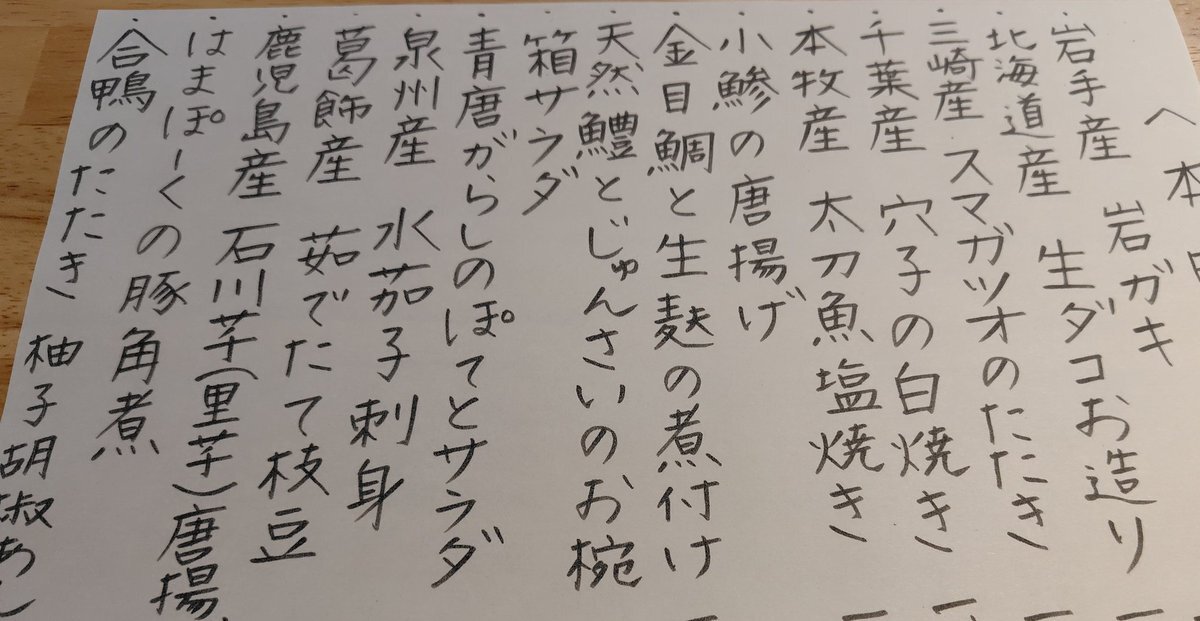 へ 本
・岩手産 岩ガキ
・北海道産 生ダコお造り
・三崎産 スマガツオのたたき
・千葉産 穴子の白焼き
・本牧産 太刀魚塩焼き
・小鯵の唐揚げ
・金目鯛と生麸の煮付け
・天然鱧とじゅんさいのお椀
・箱サラダ
・青唐がらしのぽてとサラダ
・泉州産 水茄子刺身
・葛飾産 茹でたて枝豆
・鹿児島産 石川芋(里芋)唐揚
・はまぽーくの豚角煮
・合鴨のたたき 柚子胡椒あん